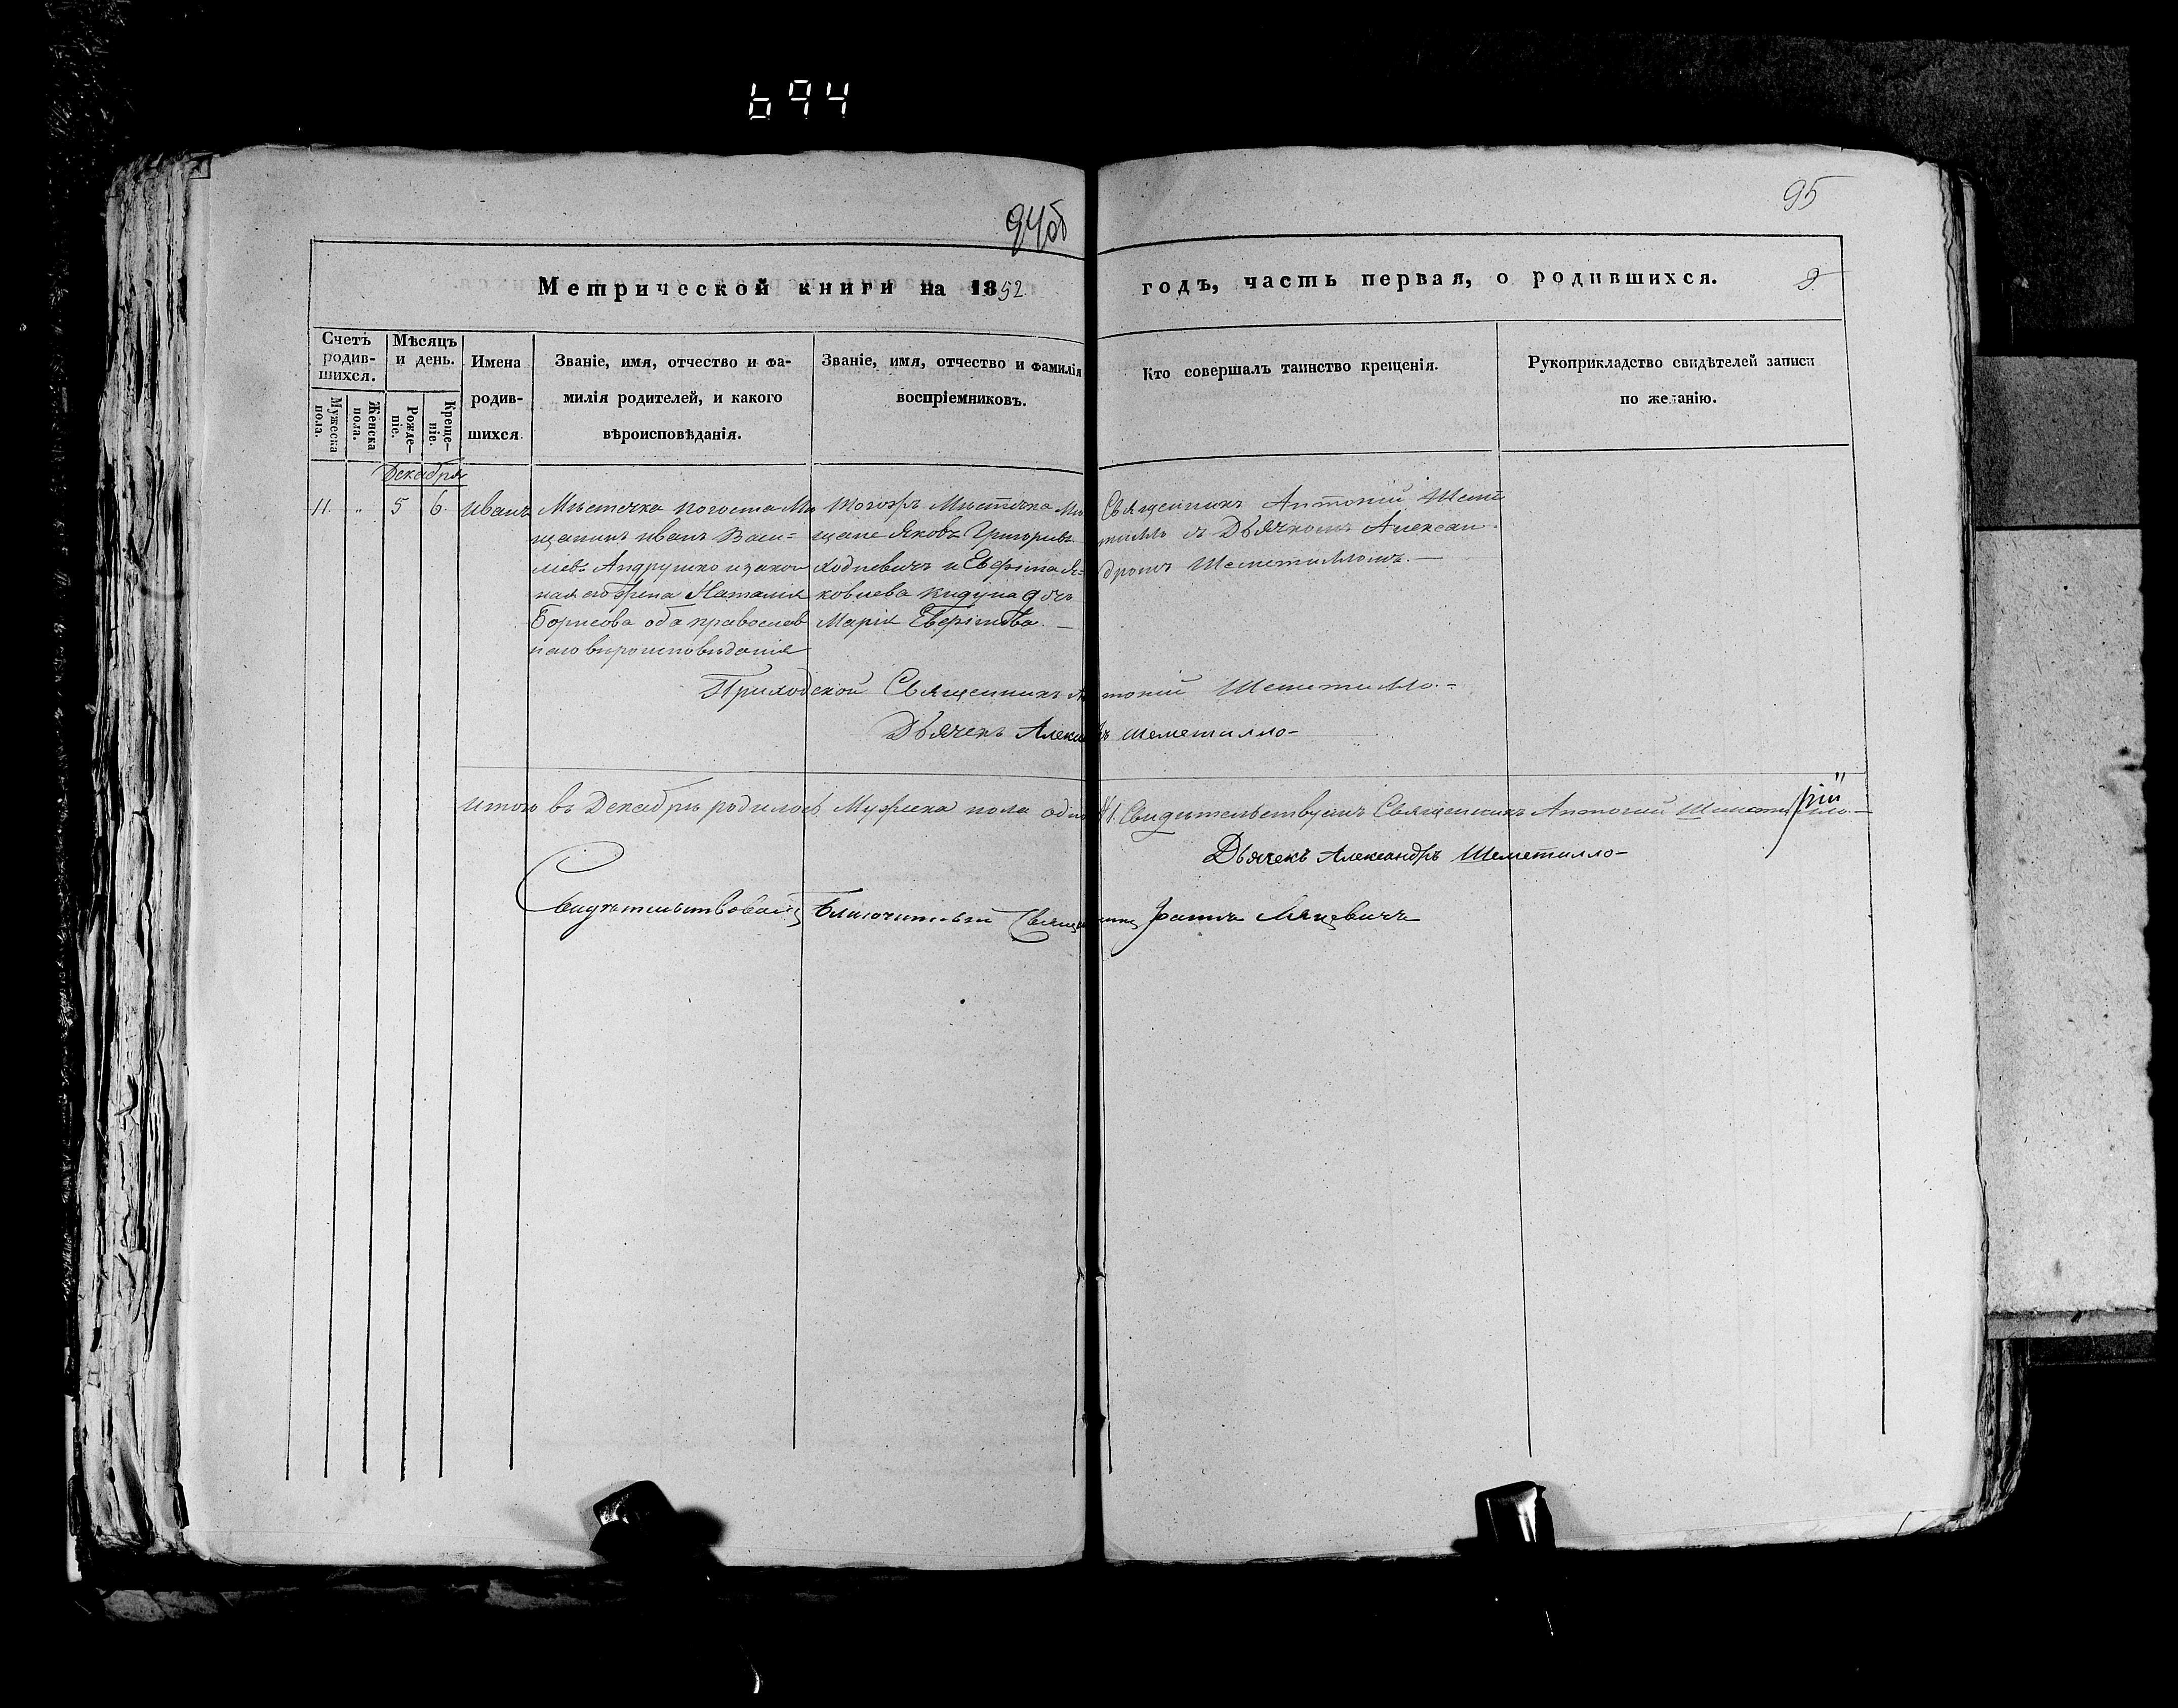 694
94об
95
Метрической книги на 1852 годъ, часть первая, о родившихся.
9.
Счетъ родив-шихся.
Мѣсяцъ и день.
Имена родив-шихся.
Званіе, имя, отчество и фа-
милія родителей, и какого
вѣроисповѣданія.
Званіе, имя, отчество и фамилія
воспріемниковъ.
Кто совершалъ таинство крещенія.
Рукоприкладство свидѣтелей записи
по желанію.
Мужеска пола.
Женска пола.
Рожде-ніе.
Креще-ніе.
Декабрь
11. „ 5 6. Иванъ
Мѣстечка Погоста Мѣ
щанинъ Иванъ Васи=
ліевъ Андрушко и закон
ная его жена Наталія
Борисова оба православ
наго вѣроисповѣданія
Тогожъ Мѣстечка Мѣ
щане Яковъ Григорьевъ
Марія
Священникъ Антоній Шеме
тилло съ Дьячкомъ Алексан
дромъ Шеметилломъ.—
Приходской Священникъ Антоній Шеметилло.=
Дьячекъ Александръ Шеметилло-
Итого въ Декабрѣ родилось Мужеска пола одинъ 1. Свидѣтельствуемъ Священникъ Антоній Шеметилло.—
Дьячекъ Александръ Шеметилло-
Свидѣтельствовалъ Благочинный Священникъ Іоаннъ Мацкевичъ